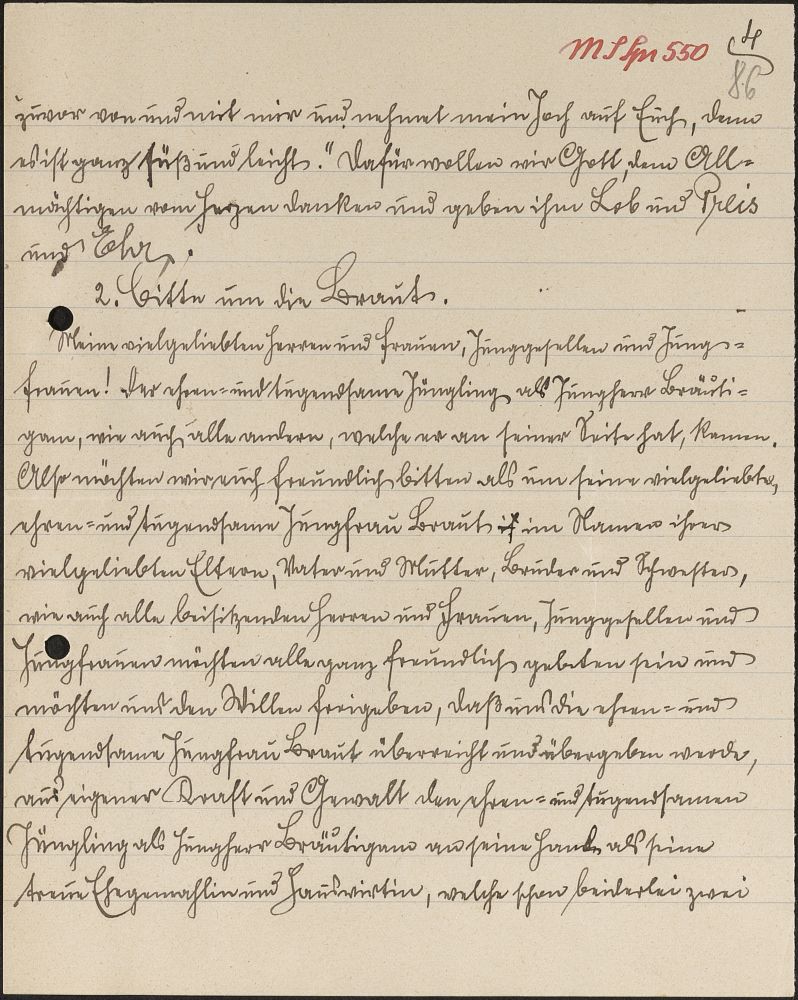 MSSpr 550 4
86
zuvor von und mit mir und nehmet mein Joch auf Euch, denn
es ist ganz süß und leicht." Dafür wollen wir Gott, dem All-
mächtigen vom Herzen danken und geben ihm Lob und Preis
und Ehr.
2. Bitte um die Braut.
Meine vielgeliebten Herren und Frauen, Junggesellen und Jung-
frauen! Der ehren- und tugendsame Jüngling als Jungherr Bräuti-
gam, wie auch alle andern, welche er an seiner Seite hat, kamen.
Also möchten wir euch freundlich bitten als um seine vielgeliebte,
ehren- und tugendsame Jungfrau Braut im Namen ihrer
vielgeliebten Eltern, Vater und Mutter, Bruder und Schwester,
wie auch alle beisitzenden Herren und Frauen, Junggesellen und
Jungfrauen möchten alle ganz freundlich gebeten sein und
möchten uns den Willen freigeben, daß uns die ehren- und
tugendsame Jungfrau Braut überreicht und übergeben werde,
aus eigener Kraft und Gewalt den ehren- und tugendsamen
Jüngling als Jungherr Bräutigam an seine Hand als seine
treue Ehegemahlin und Hauswirtin, welche schon beiderlei zwei